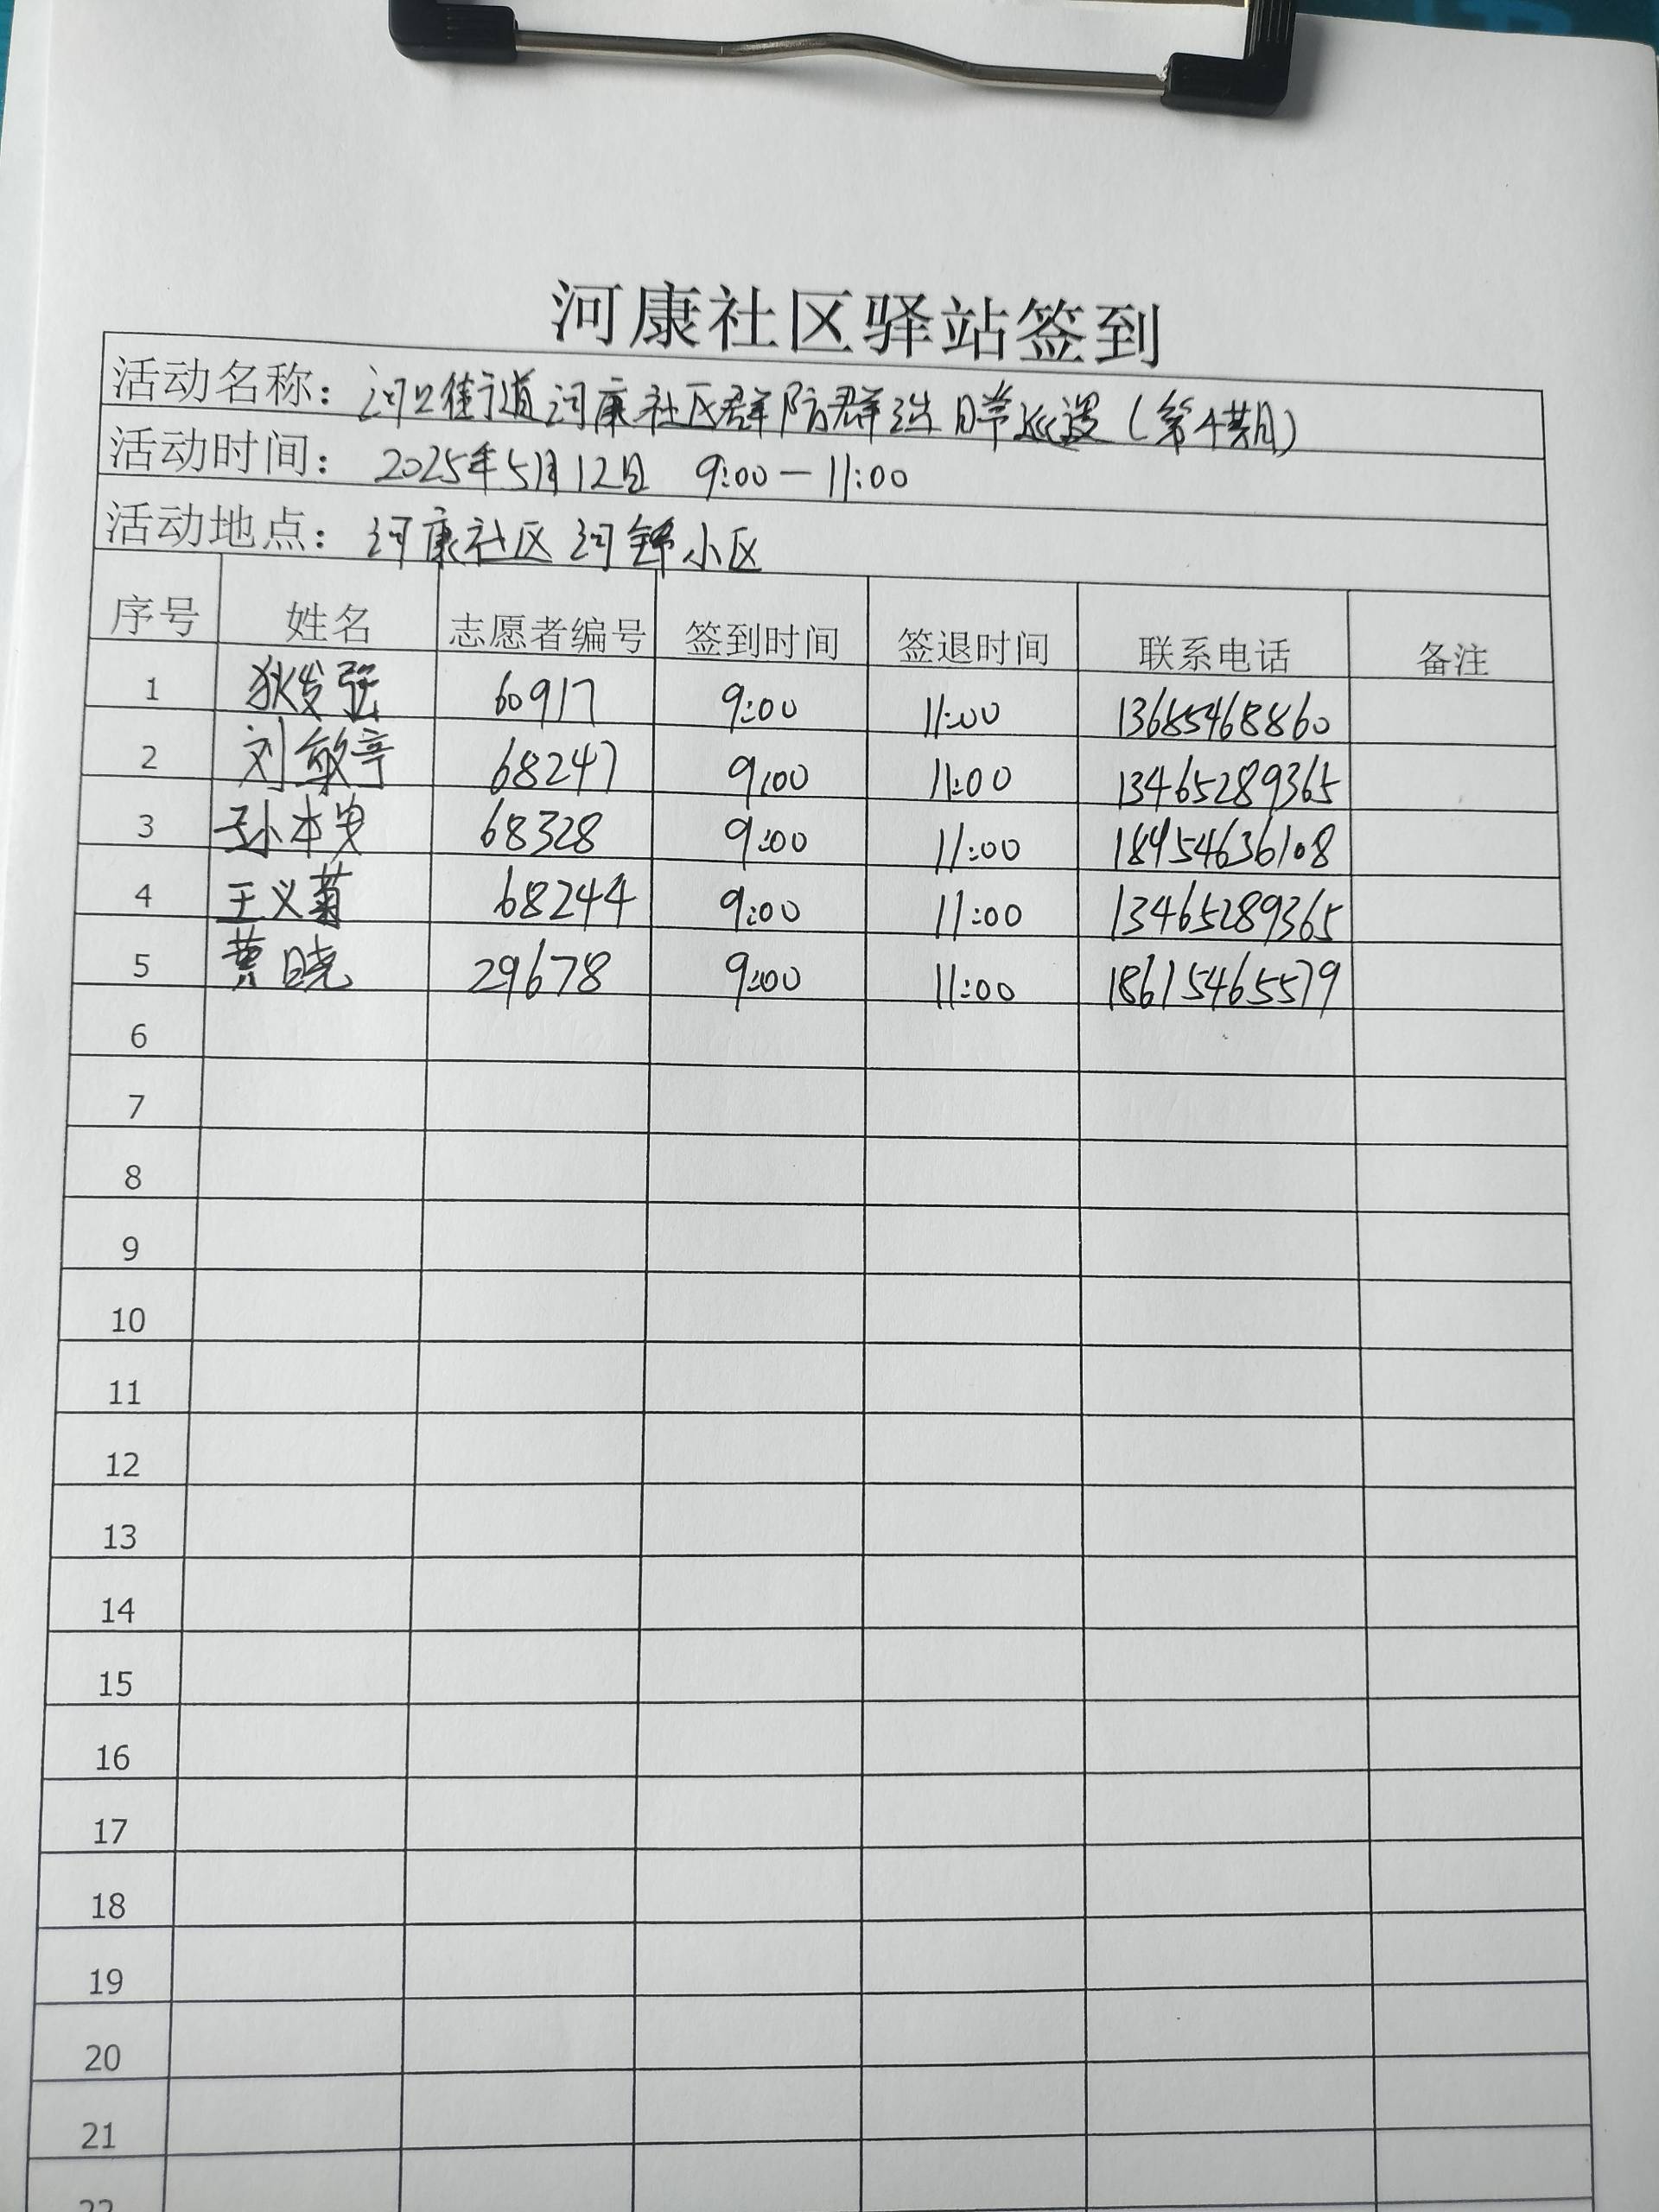 河康社区驿站签到
活动名称: 河口街道河康社区群防群治日常巡逻(第4期)
活动时间: 2025年5月12日 9:00—11:00
活动地点: 河康社区河锦小区
序号 姓名 志愿者编号 签到时间 签退时间 联系电话 备注
1 狄发强 60917 9:00 11:00 13685468860
2 刘敏 68247 9:00 11:00 13465289365
3 孙本安 68328 9:00 11:00 18954636108
4 王义菊 68244 9:00 11:00 13465289365
5 晓 29678 9:00 11:00 18615465579
6
7
8
9
10
11
12
13
14
15
16
17
18
19
20
21
22